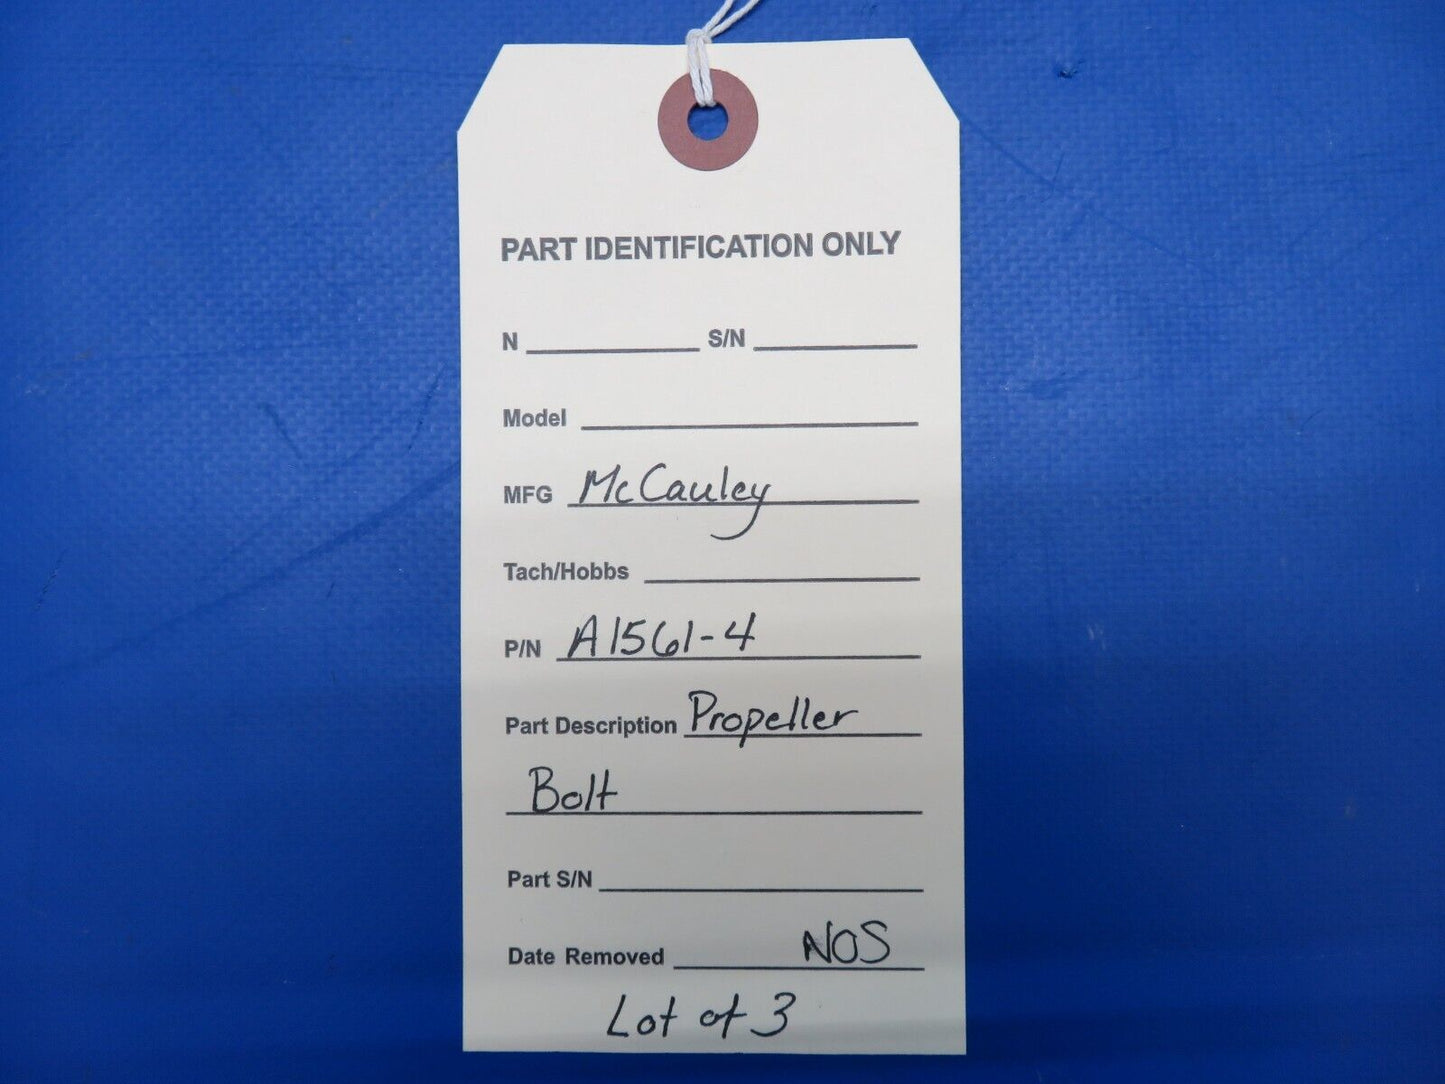 PART IDENTIFICATION ONLY
N ________ S/N ________
Model ________
MFG McCauley
Tach/Hobbs ________
P/N A1561-4
Part Description Propeller
Bolt
Part S/N ________
Date Removed NOS
Lot of 3